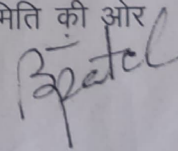 की ओर
Bpatel